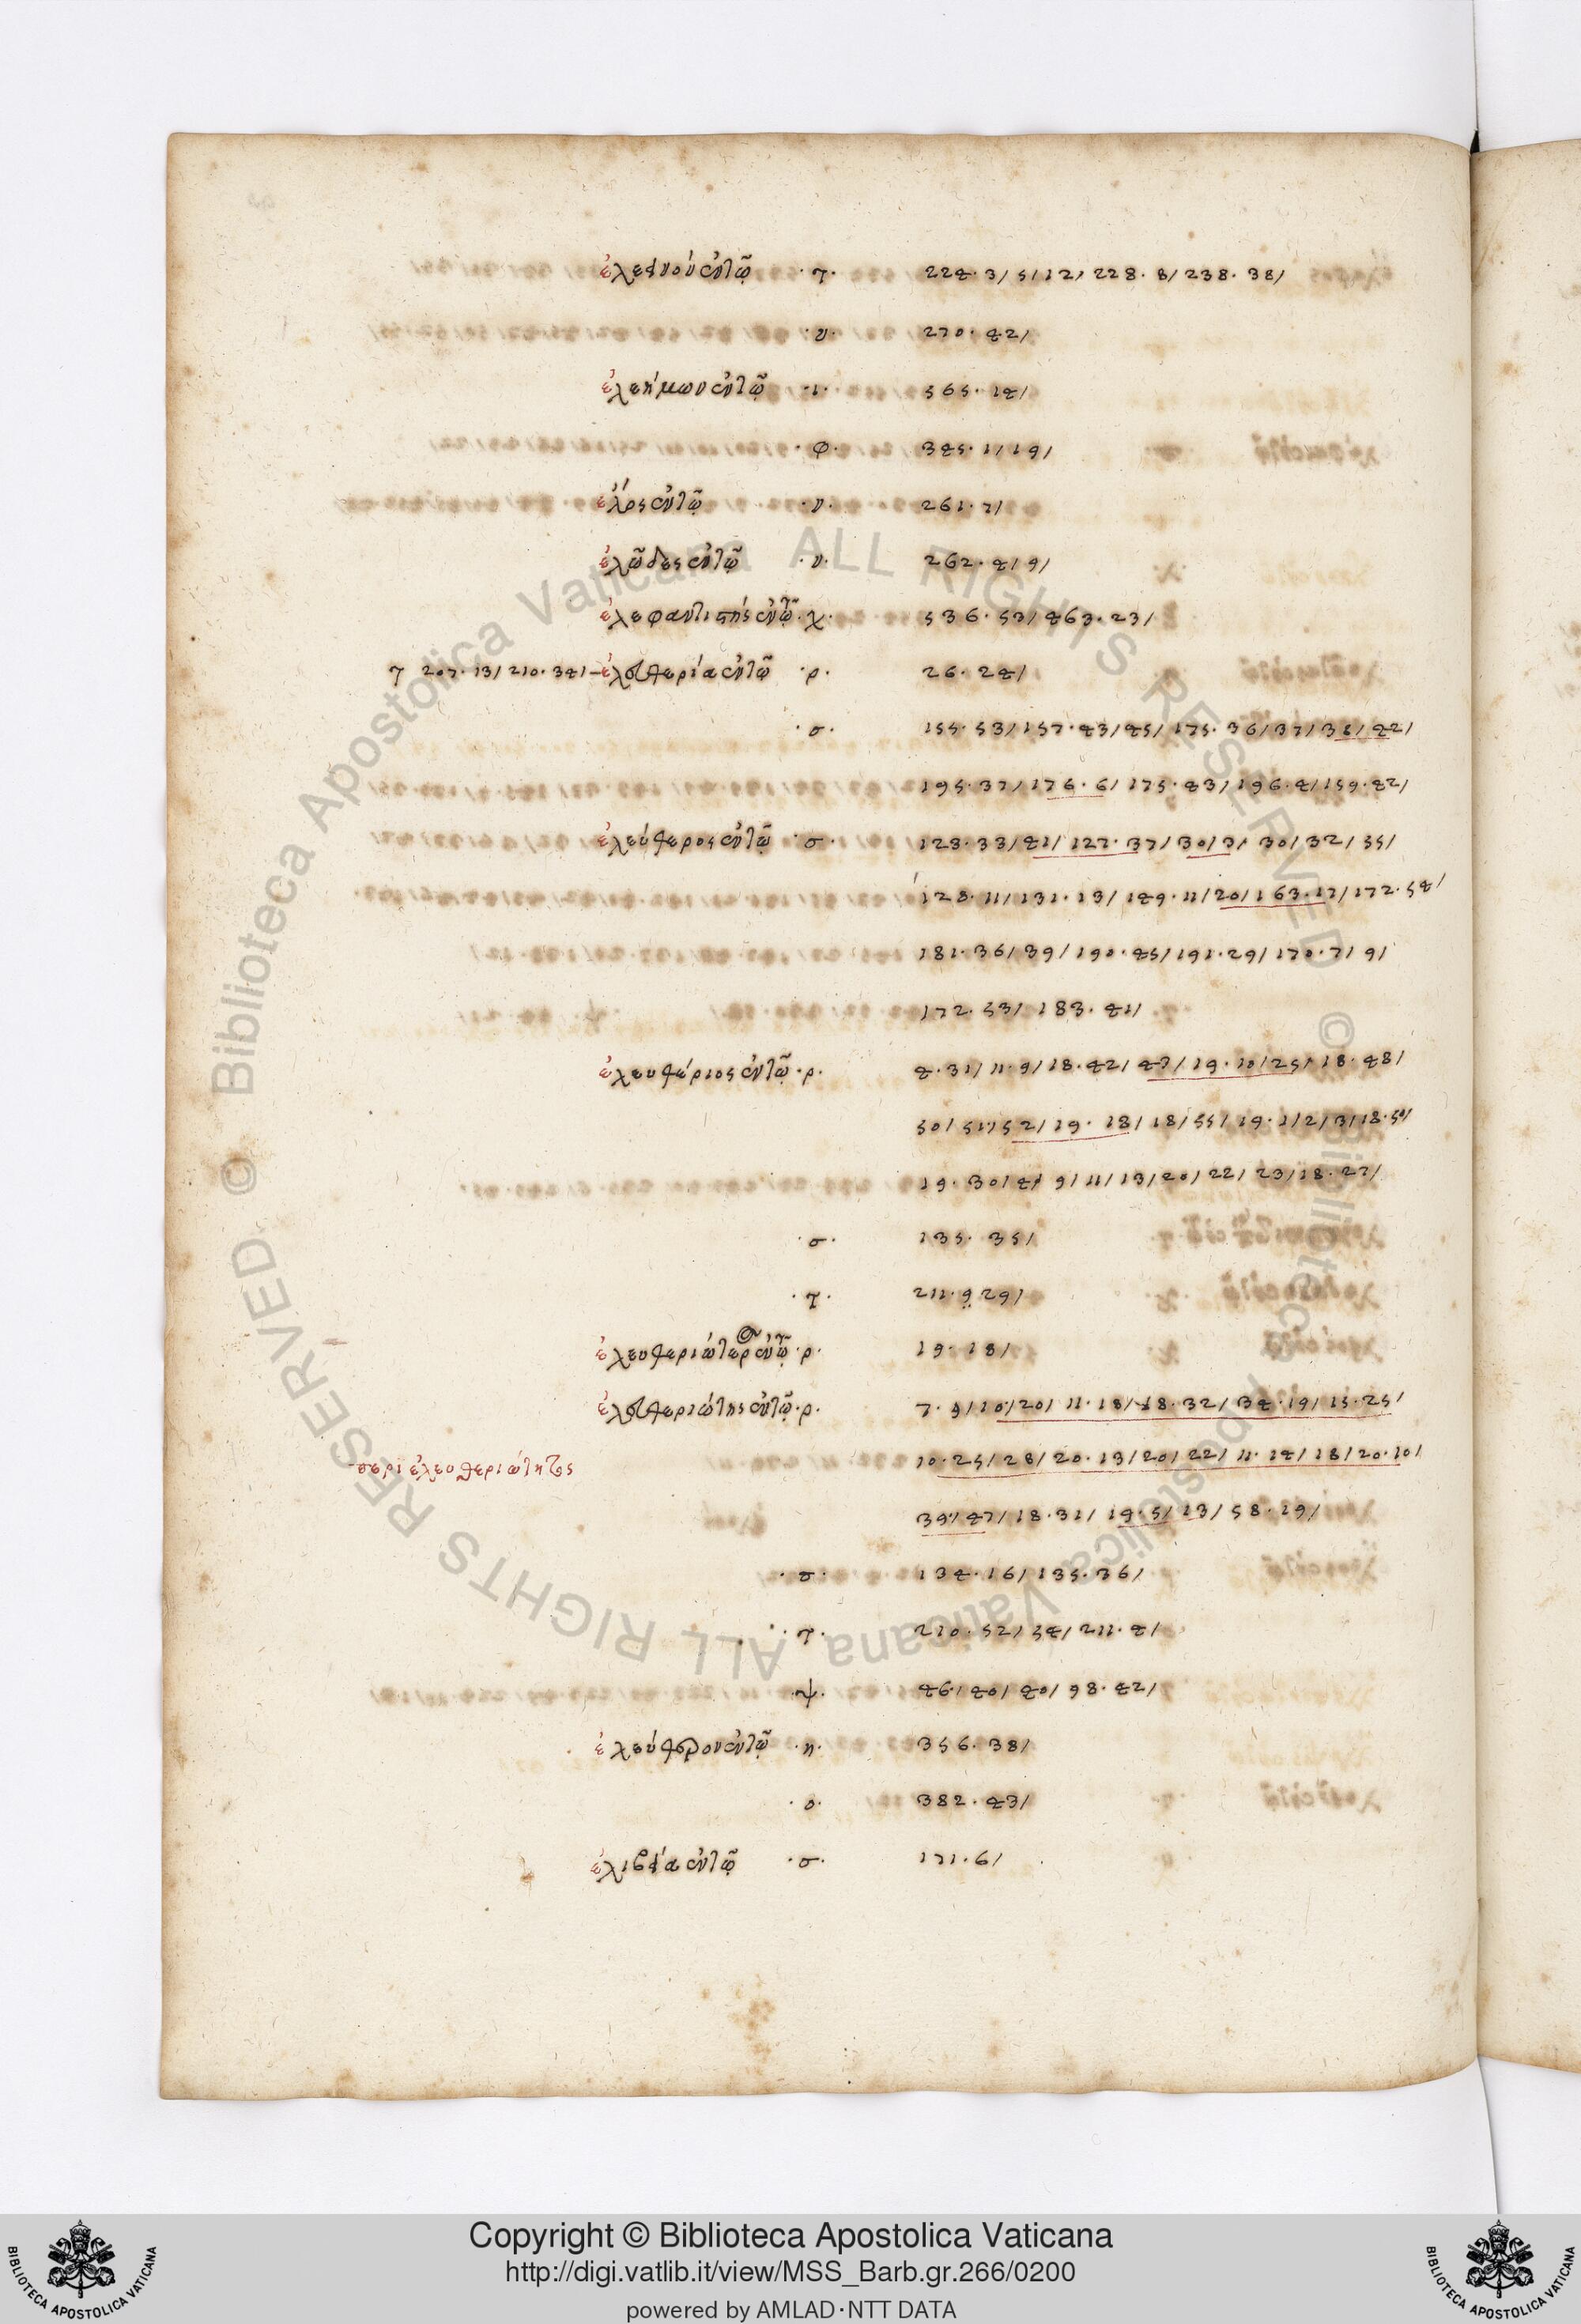 ἐλεεινοὺ ἐν τῷ ·τ· 224·3/5/12/228·8/238·38/
·υ· 270·42/
ἐλεήμων ἐν τῷ ·ι· 565·14/
·φ· 345·1/19/
ἕλος ἐν τῷ ·υ· 261·7/
ἑλῶδες ἐν τῷ ·υ· 262·4/9/
ἐλεφαντιπης ἐν τῷ ·χ· 536·53/463·23/
τ 207·13/210·34/– ἐλευθερία ἐν τῷ ·ρ· 26·24/
·σ· 155·53/157·43/45/175·36/37/38/42/
195·37/176·6/175·43/196·4/159·42/
ἐλεύθερος ἐν τῷ ·σ· 128·33/41/127·37/30/3/30/32/35/
128·11/131·13/149·11/20/163·17/172·54/
181·36/39/190·45/191·29/170·7/9/
172·53/183·41/
ἐλευθέριος ἐν τῷ ·ρ· 4·31/11·9/18·42/47/19·10/25/18·48/
50/51/52/19·18/18/55/19·1/2/3/18·50/
19·30/4/9/11/13/20/22/23/18·27/
·σ· 135·35/
·τ· 211·9 29/
ἐλευθεριώτερον ἐν τῷ ·ρ· 19·18/
ἐλευθεριότης ἐν τῷ ·ρ· 7·9/10/20/11·18/18·32/34·19/15·25/
περι ἐλευθεριώτητος 10·25/28/20·13/20/22/11·14/18/20·10/
39/47/18·31/19·5/13/58·19/
·σ· 134·16/135·36/
·τ· 210·52/54/211·4/
·ψ· 46/40/40/98·42/
ἐλεύθερον ἐν τῷ ·η· 356·38/
·ο· 382·43/
ἐν τῷ ·σ· 171·6/
Copyright © Biblioteca Apostolica Vaticana
http://digi.vatlib.it/view/MSS_Barb.gr.266/0200
powered by AMLAD·NTT DATA